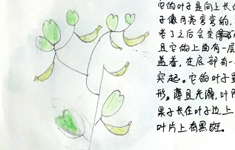 它的叶子是向上长的
子像月亮弯弯的,
老了之后会变
且它的上面有一层
盖着,在底部有一
突起。它的叶子
形。薄且光滑,叶
果子长在叶子边上
叶片上有黑斑。